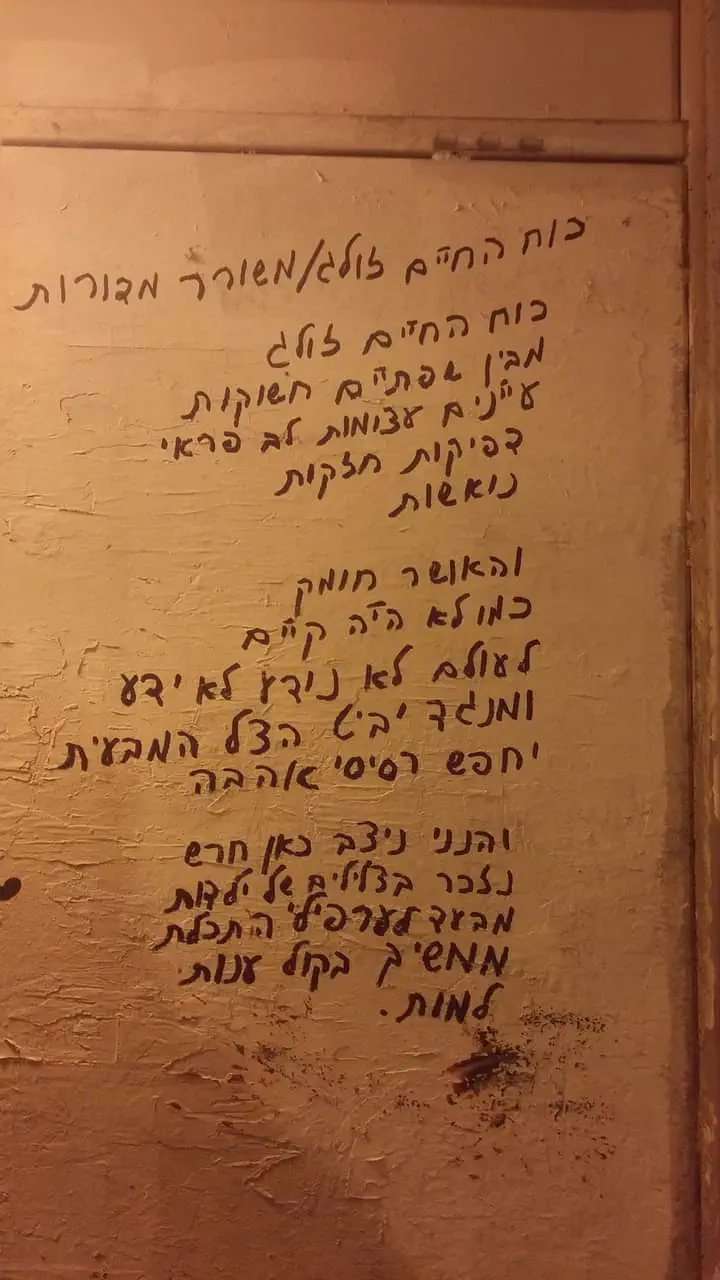 כוח החיים זולג/משורר מדורות
כוח החיים זולג
מבין שפתיים חשוקות
עיינים עצומות לב פראי
דפיקות חזקות
נואשות
והאושר חומק
כמו לא היה קיים
לעולם לא נידע לא ידע
ומנגד יביט הצל המבעית
יחפש רסיסי אהבה
והנני ניצב כאן חרש
נזכר בצלילים של ילדות
מבעד לערפילי התכלת
ממשיך בקול ענות
למות.